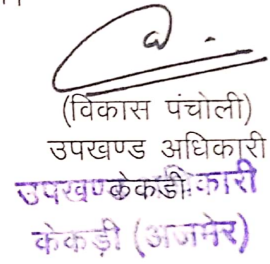 (विकास पंचोली)
उपखण्ड अधिकारी
केकडी
उपखण्ड अधिकारी
केकड़ी (अजमेर)